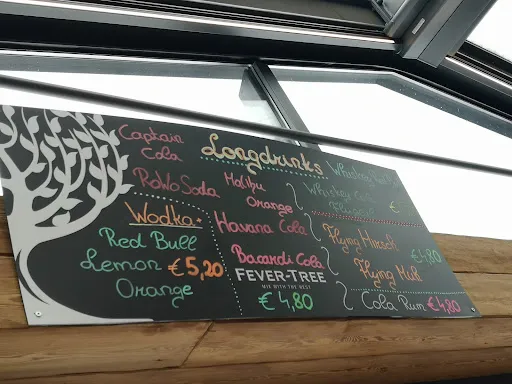 Longdrinks
Captain
Cola
RoWoSoda
Wodka
Red Bull
Lemon €5,20
Orange
Malibu
Orange
Havana Cola
Bacardi Cola
FEVER-TREE
MIX WITH THE BEST
€4,80
Whiskey
Whiskey
€
Flying Hirsch
€4,80
Flying
Cola Rum €4,80